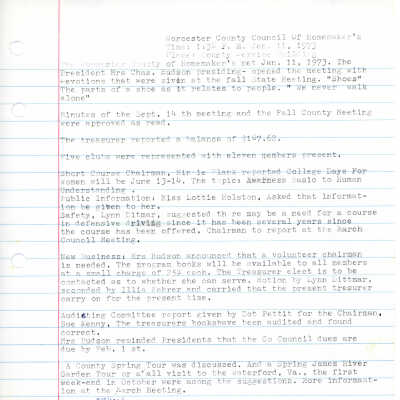 Worcester County Council Of Homemaker's
Time: 1:30 P. M. Jan. 11, 1973
The Worcester County of Homemaker's met Jan. 11, 1973. The
President Mrs Chas. Hudson presiding- opened the meeting with
devotions that were given at the fall State Meeting. "Shoes"
The parts of a shoe as it relates to people. " We never walk
alone"
Minutes of the Sept. 14th meeting and the Fall County Meeting
were approved as read.
The treasurer reported a balance of
Five clubs were represented with eleven members present.
Short Course Chairman, reported College Days For
women will be June 13-14. The topic: Awarness Basic to Human
Understanding .
Public Information: Miss Lottie Holston. Asked that informat-
ion be given to her.
Safety, Lynn Ditmar, suggested there may be a need for a course
in defensive driving since it has been several years since
the course has been offered. Chairman to report at the March
Council Meeting.
New business: Mrs Hudson announced that a volunteer chairman
is needed. The program books will be available to all members
at a small charge of 25¢ each. The Treasurer elect is to be
contacted as to whether she can serve. Motion by Lynn Dittmar,
seconded by and carried that the present tresurer
carry on for the present time.
Auditing Committee report given by Dot Pettit for the Chairman,
Sue The treasurers bookshave been audited and found
correct.
Mrs Hudson reminded Presidents that the Co Council dues are
due by Feb. 1 st.
A County Spring Tour was discussed. And a Spring James River
Garden Tour or a fall visit to the Waterford, Va., the first
week-end in October were among the suggestions. More informat-
ion at the March Meeting.